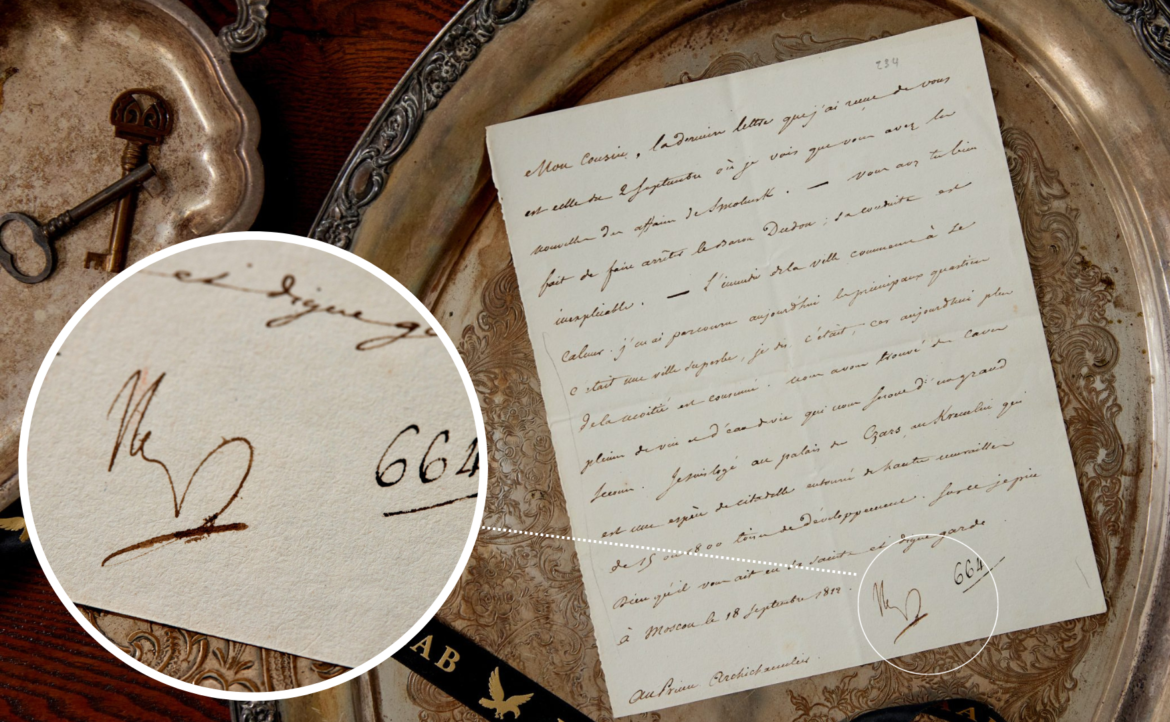 234
Mon Cousin, la dernière lettre que j'ai reçue de vous
est celle du 2 Septembre où je vois que vous avez la
nouvelle des affaires de Smolensk. — vous avez très bien
fait de faire arrêter le Baron Dudon; sa conduite est
inexplicable. — l'incendie de la ville commence à se
calmer. j'ai parcouru aujourd'hui les principaux quartiers
c'était une ville superbe, je dis c'était car aujourd'hui plus
de la moitié est consumé. nous avons trouvé des caves
pleines de vin et d'eau de vie qui nous seront d'un grand
secours. Je suis logé au palais des Czars, au Kremlin qui
est une espèce de citadelle entourée de hautes murailles
de 15 ou 1800 toises de développement. Sur ce je prie
Dieu qu'il vous ait en Sa Sainte et digne garde
à Moscou le 18 Septembre 1812.
664
Au Prince Archichancelier.
et digne
664
AB